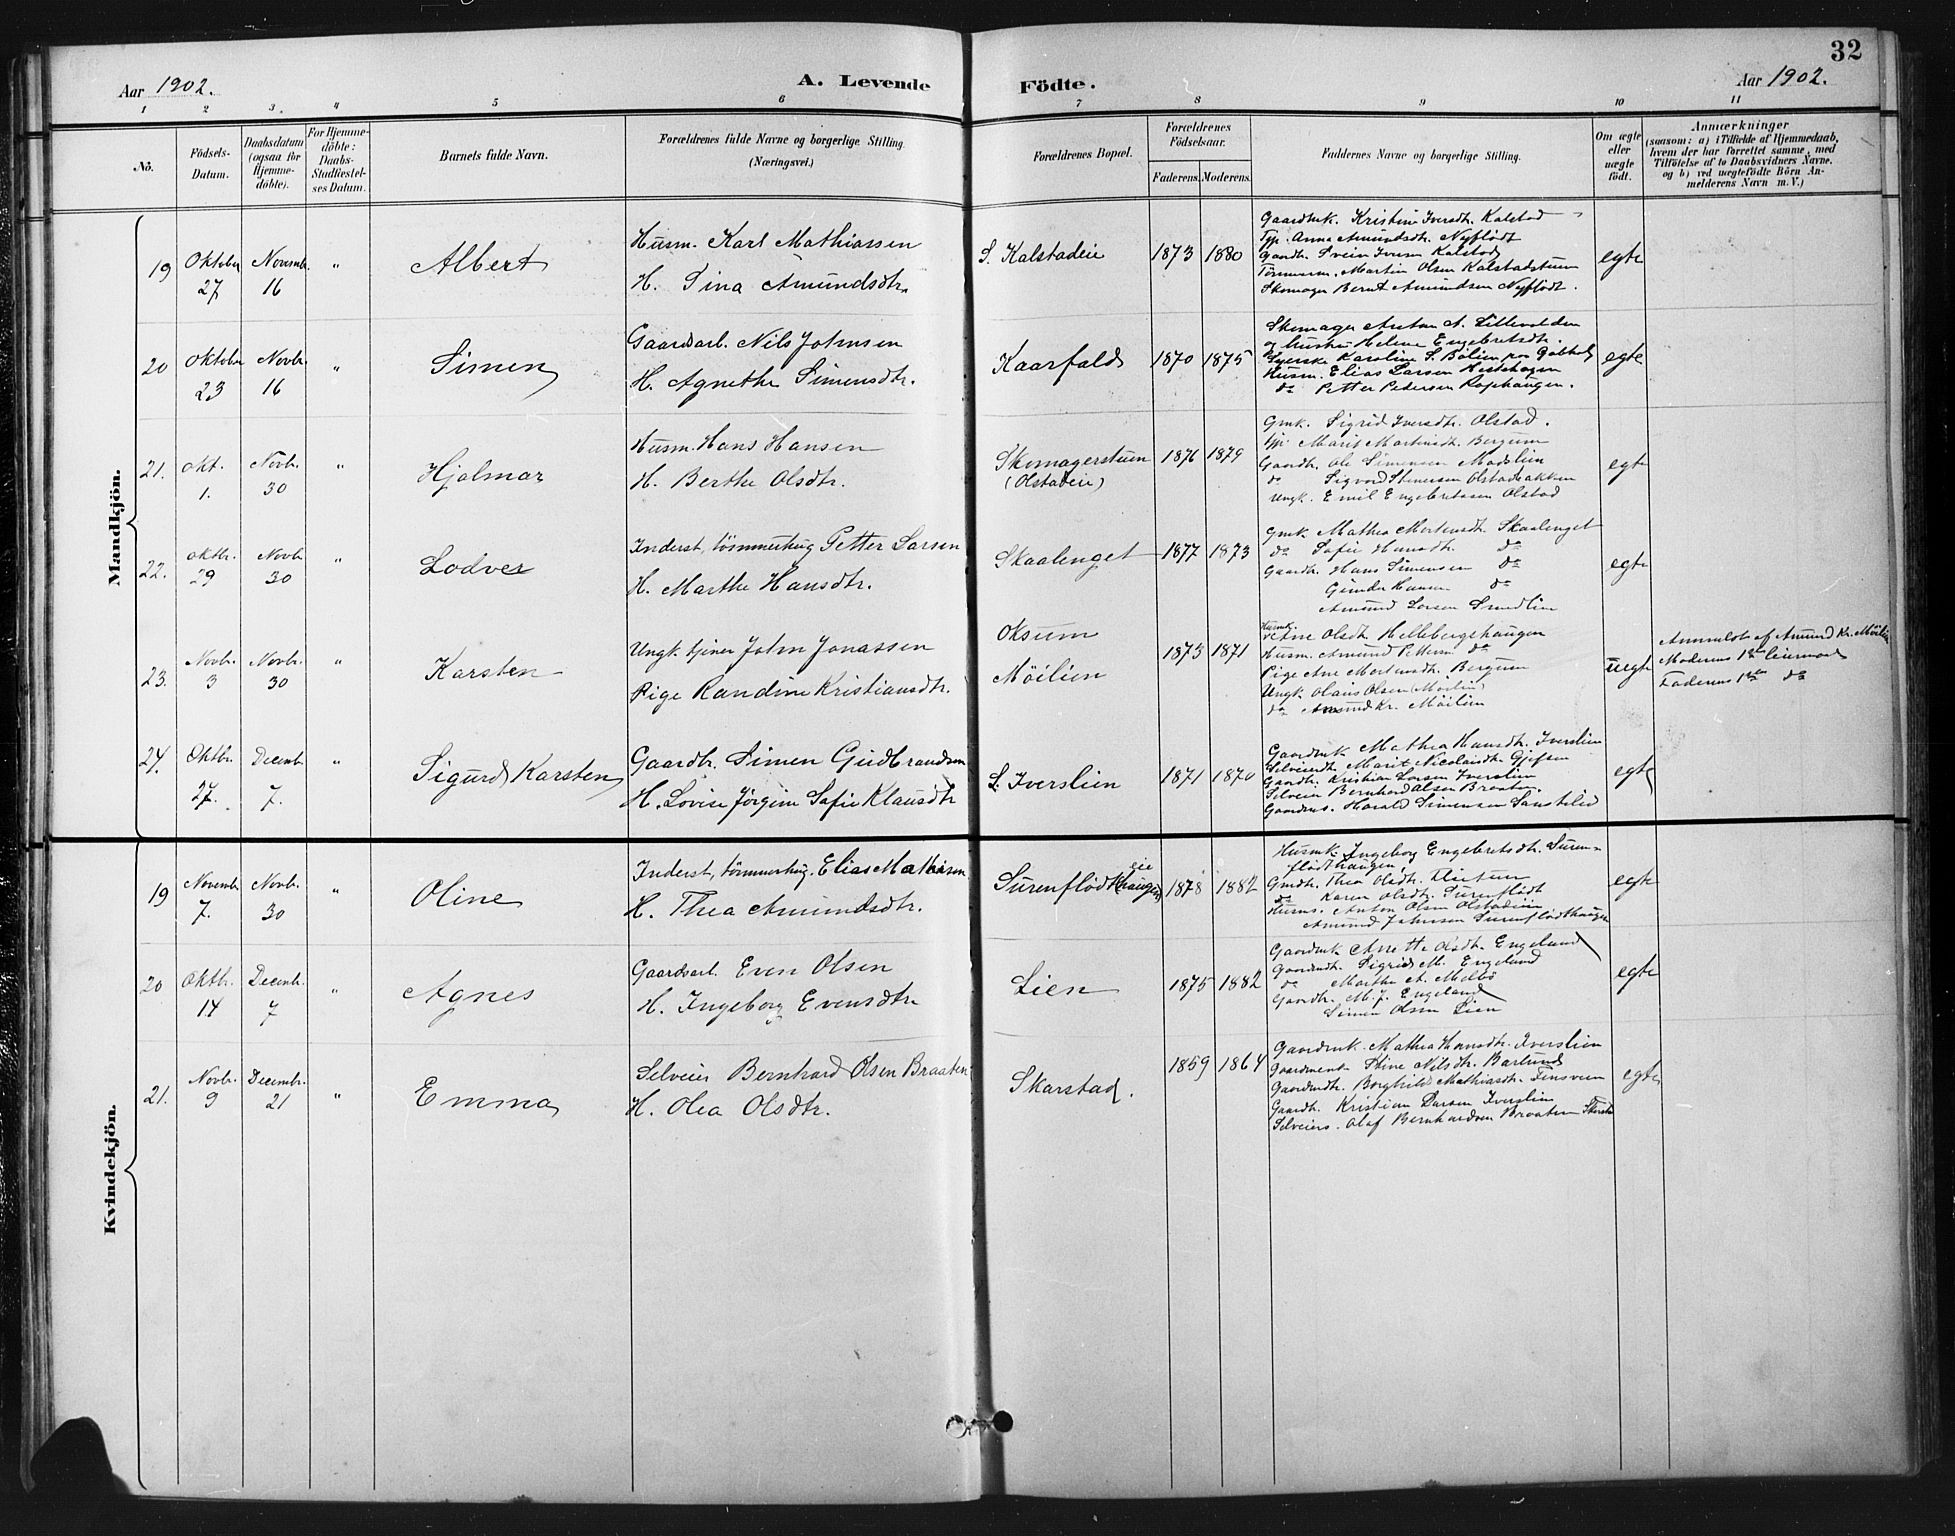 32
Aar 1902.
A. Levende
Födte.
Aar 1902.
1 2 3. 4 5 6 7 8 9 10 11
No.
Födsels-
Datum.
Daabsdatum
(ogsaa for
Hjemme-
döbte).
For Hjemme-
döbte:
Daabs-
Stadfæstel-
ses Datum.
Barnets fulde Navn.
Forældrenes fulde Navne og borgerlige Stilling.
(Næringsvei.)
Forældrenes Bopæl.
Forældrenes
Födselsaar.
Faderens.
Moderens.
Faddernes Navne og borgerlige Stilling.
Om ægte
eller
uægte
födt.
Anmærkninger
(saasom: a) i Tilfælde af Hjemmedaab,
hvem der har forrettet samme, med
Tilföielse af to Daabsvidners Navne.
og b) ved uægtefödte Börn An-
melderens Navn m. V.)
Mandkjön.
19
Oktober
27
Novembr.
16
"
Albert
Husm. Karl Mathiassen
H. Sina Amundsdtr.
S. Kalstadeie
1873
1880
Gaardmk. Kristine Iversdtr. Kalstad
Tjp. Anna Amundsdtr. Nyflödt
Gaardbr. Svein Iversen Kalstad
Tömmerm. Martin Olsen Kalstadstuen
Skomager Bernt Amundsen Nyflödt.
egte
20
Oktober
23
Novbr.
16
"
Simen
Gaardsarb. Nils Johnsen
H. Agnethe Simensdtr.
Kaarfald
1870
1875
Skomager Anton A. Lillevolden
og hustru Helene Engebretsdtr.
Syerske Karoline S. Bölien paa
Husm. Elias Larsen
do Petter Pedersen
egte
21.
Okt.
1.
Novbr.
30
"
Hjalmar
Husm. Hans Hansen
H. Berthe Olsdtr.
Skomagerstuen
(Olstadeie)
1876
1879
Gmk. Sigrid Iversdtr. Olstad.
Tjp. Marit Martinsdtr. Bergum
Gaardbr. Ole Simensen Modslien
do Sigvord Stenersen Olstadbakken
Ungk. Emil Engebretasen Olstad
egte
22.
Oktbr.
29
Novbr.
30
"
Lodver
Inderst, tömmerhug Petter Larsen
H. Marthe Hansdtr.
Skaalenget
1877
1873
Gmk. Mathea Mortensdtr. Skaalenget
do Sofie Hansdtr. do
Gaardbr. Hans Simensen do
Gunder Hansen do
Amund Larsen Smedlien
egte
23.
Novbr.
3
Novbr.
30
"
Karsten
Ungk. tjener John Jonassen
Pige Randine Kristiansdtr.
Oksum
Möilien
1873
1871
Husmk.
Ane Olsdtr. Hellebergshaugen
Husm. Amund Pettersen do
Pige Ane Mortensdtr. Bergum
Ungk. Olaus Olsen (Möilien)
do Amund Kr. Möilien
uegte
Anmeldt af Amund Kr. Möilien
Moderens 1ste leiermaal
Faderens 1ste do
24.
Oktbr.
27.
Decemb.
7.
"
Sigurd Karsten
Gaardbr. Simen Gudbrandsen
H. Lovise Jörgine Sofie Klausdtr
S. Iverslien
1871
1870
Gaardmk. Mathea Hansdtr. Iverslien
Selveierdtr. Marit Nicolaisdtr. Gjefsen
Gaardbr. Kristian Larsen Iverslien
Selveier Bernhard Olsen Braaten.
Gaardms. Harald Simensen
egte
Kvindekjön.
19
Novembr.
7.
Novbr.
30
"
Oline
Inderst, tömmerhug. Elias Mathiesen
H. Thea Amundsdtr.
Surenflödthaugen
eie
1878
1882
Husmk. Ingeborg Engebretsdtr. Suren-
flödthaugen
Gmdtr. Thea Olsdtr.
do Karen Olsdtr. Surenflödt
Husms. Anton Olsen Olstadeie
Amund Johnsen Surenflödthaugen
egte
20
Oktbr.
14
Decembr.
7
"
Agnes
Gaardsarb. Even Olsen
H. Ingeborg Evensdtr
Lien
1875
1882
Gaardmk. Anette Olsdtr. Engeland
Gaardmdtr. Sigrid M. Engeland
do Marthe A. Melbö
Gaardbr. M. J. Engeland
Simen Olsen Lien
egte
21.
Novbr.
9
Decembr.
21
"
Emma
Selveier Bernhard Olsen Braaten
H. Olea Olsdtr.
Skarstad.
1859
1864
Gaardmk. Mathea Hansdtr. Iverslien
Gaardmenk. Stine Nilsdtr. Barlund
Gaardmdtr. Borghild Mathiasdtr. Finsveen
Gaardbr. Kristian Larsen Iverslien
Selveiers. Olaf Bernhardsen Braaten Skarstad
egte